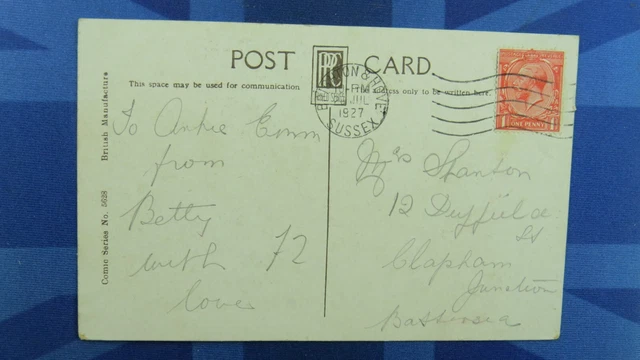 POST CARD
This space may be used for communication
The address only to be written here.
SUSSEX
JUL
1927
ONE PENNY
British Manufacture
Comic Series No. 5628
To
from
Betty
with
love
72
Mrs Shanson
12
St
Clapham
Junction
Battersea